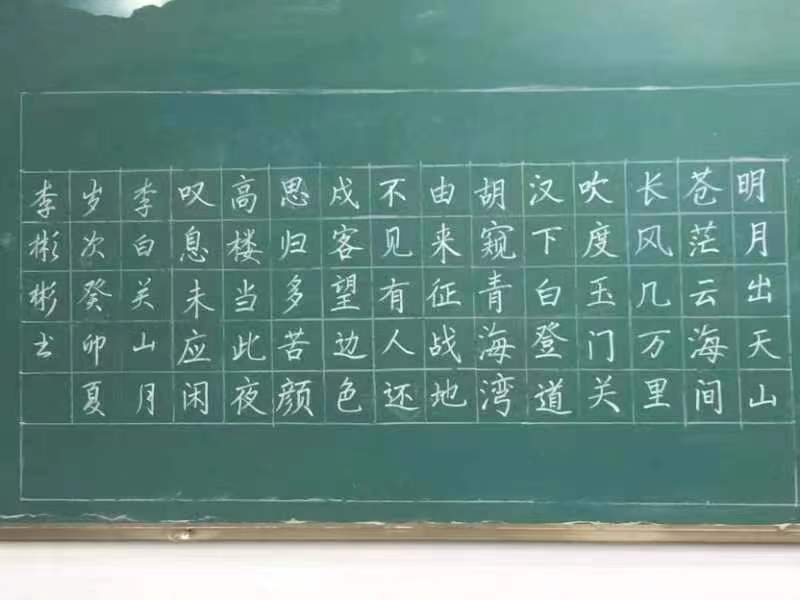 明月出天山
苍茫云海间
长风几万里
吹度玉门关
汉下白登道
胡窥青海湾
由来征战地
不见有人还
戍客望边色
思归多苦颜
高楼当此夜
叹息未应闲
李白关山月
岁次癸卯夏
李彬彬书